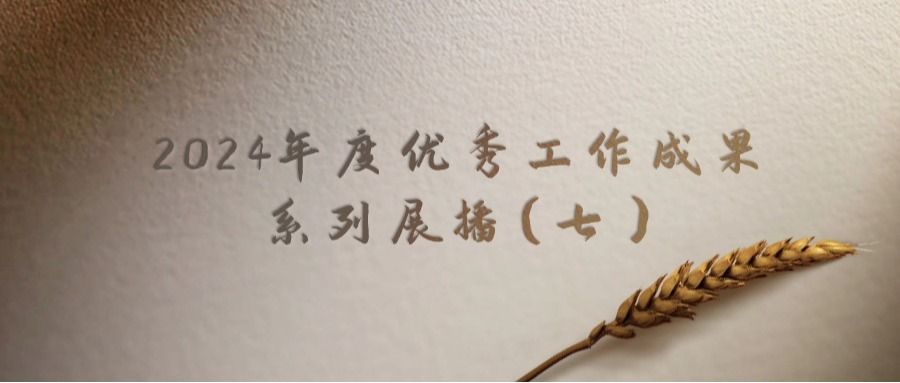 2024年度优秀工作成果
系列展播(七)